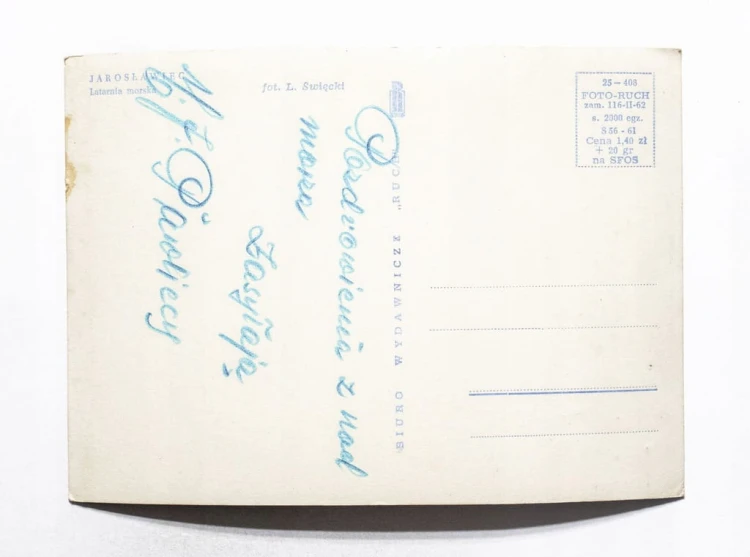 JAROSŁAWIEC
Latarnia morska
fot. L. Święcki
25 — 408
FOTO-RUCH
zam. 116-II-62
n. 2000 egz.
S 56 - 61
Cena 1,40 zł
+ 20 gr
na SFOS
BIURO WYDAWNICZE „RUCH”
Pozdrowienia z nad
morza
zasyłają
J. Pawliccy